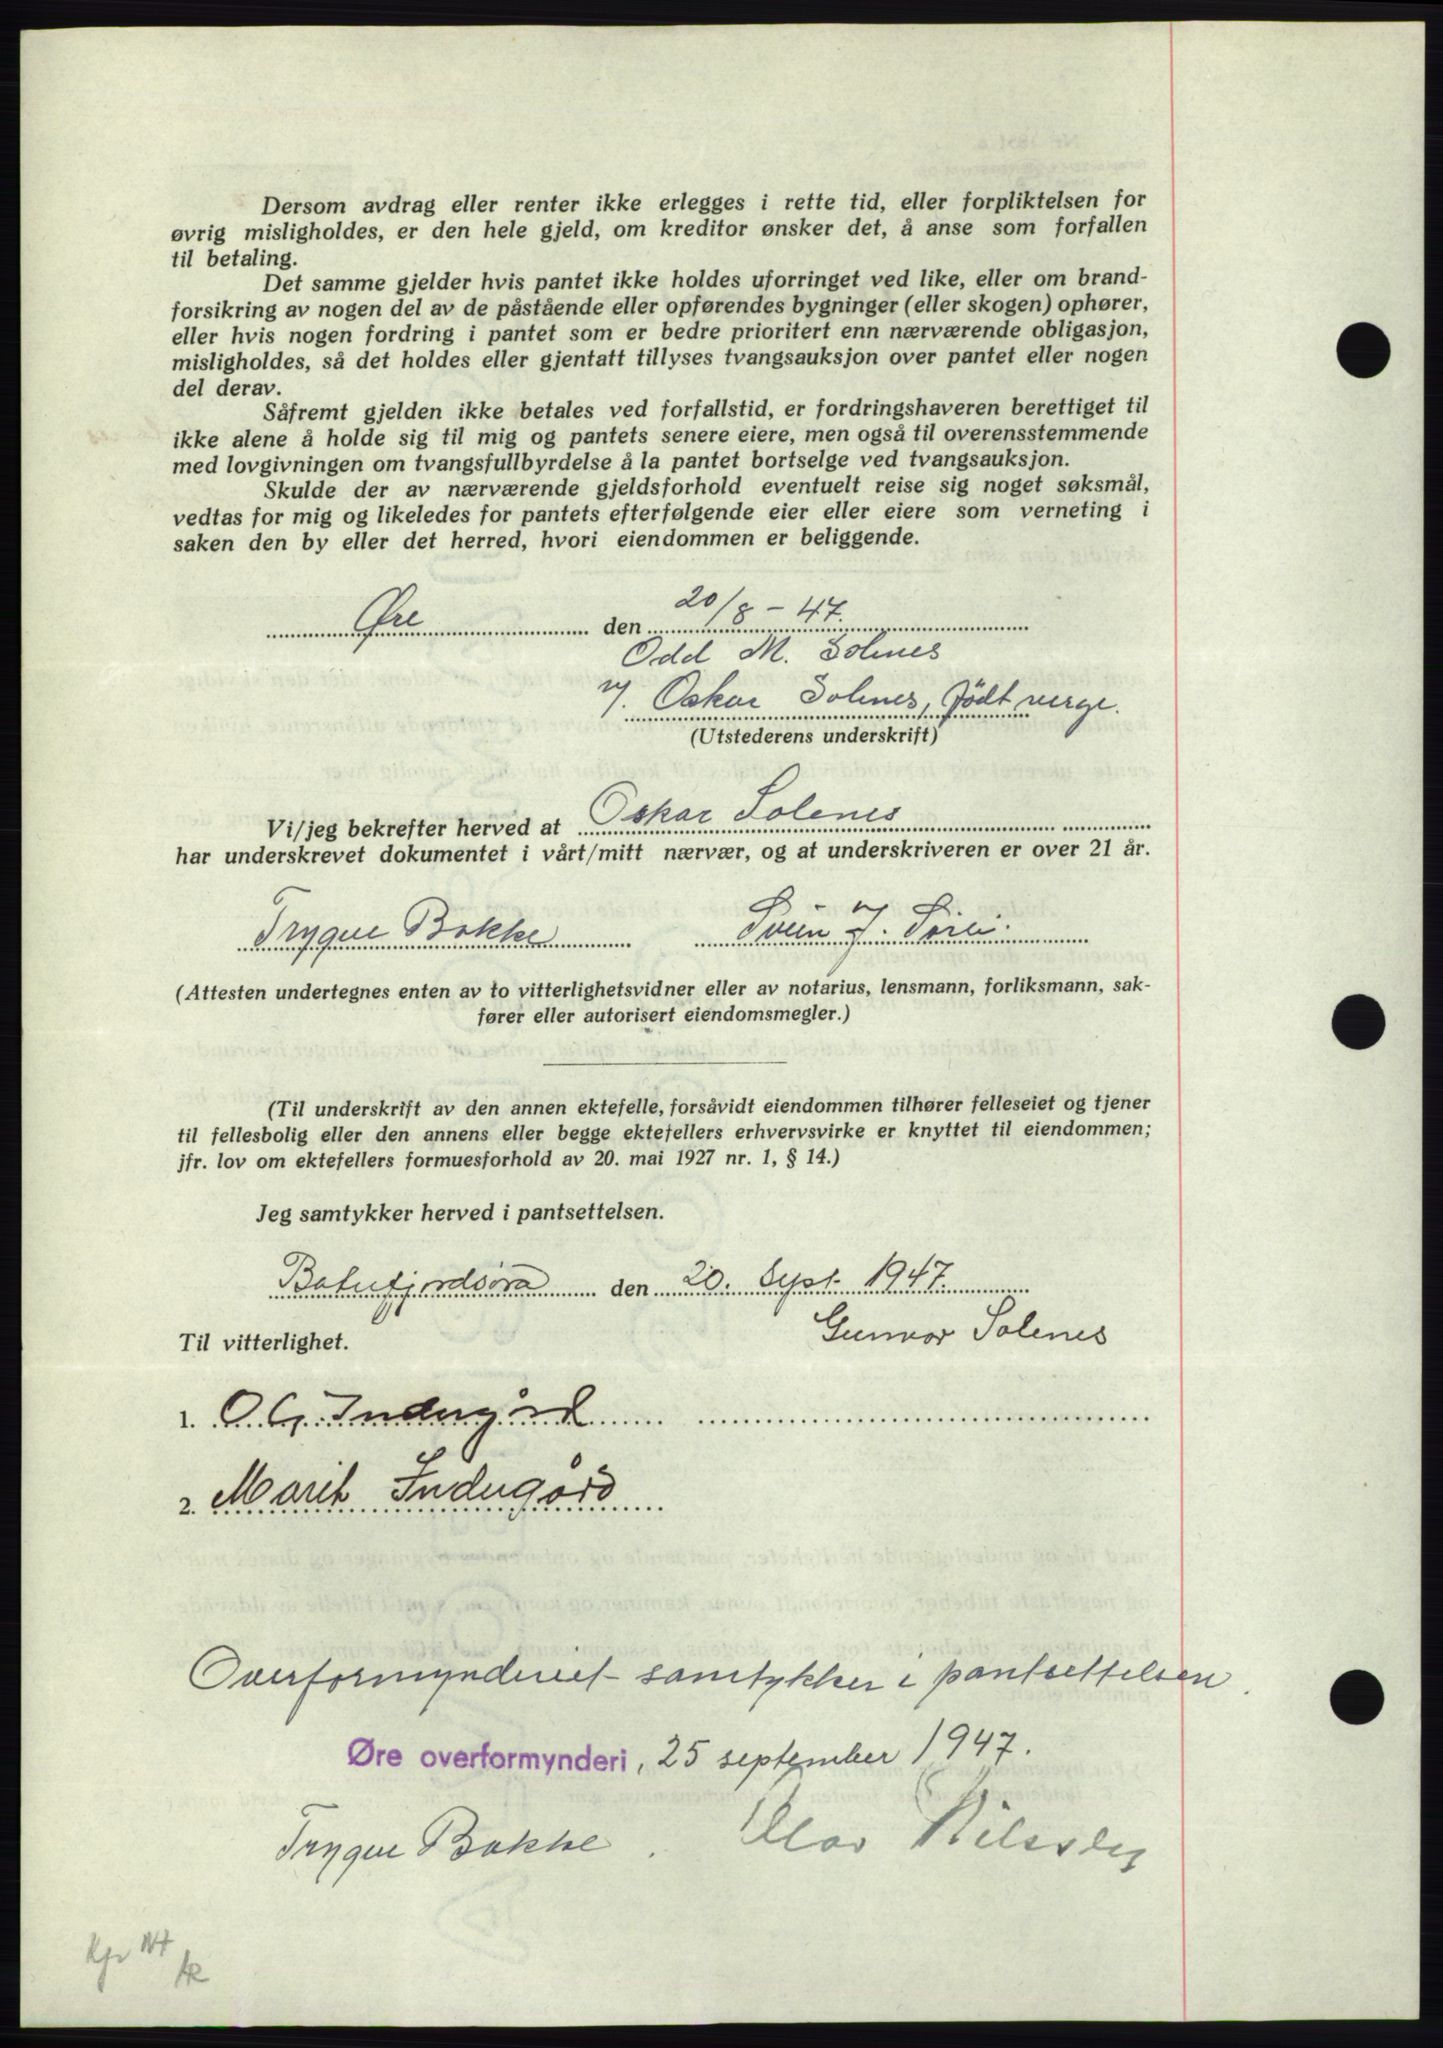 Dersom avdrag eller renter ikke erlegges i rette tid, eller forpliktelsen for
øvrig misligholdes, er den hele gjeld, om kreditor ønsker det, å anse som forfallen
til betaling.
Det samme gjelder hvis pantet ikke holdes uforringet ved like, eller om brand-
forsikring av nogen del av de påstående eller opførendes bygninger (eller skogen) ophører,
eller hvis nogen fordring i pantet som er bedre prioritert enn nærværende obligasjon,
misligholdes, så det holdes eller gjentatt tillyses tvangsauksjon over pantet eller nogen
del derav.
Såfremt gjelden ikke betales ved forfallstid, er fordringshaveren berettiget til
ikke alene å holde sig til mig og pantets senere eiere, men også til overensstemmende
med lovgivningen om tvangsfullbyrdelse å la pantet bortselge ved tvangsauksjon.
Skulde der av nærværende gjeldsforhold eventuelt reise sig noget søksmål,
vedtas for mig og likeledes for pantets efterfølgende eier eller eiere som verneting i
saken den by eller det herred, hvori eiendommen er beliggende.
Øre den 20/8-47.
Odd M. Solenes
v/. Oskar Solenes, født verge.
(Utstederens underskrift)
Vi/jeg bekrefter herved at Oskar Solenes
har underskrevet dokumentet i vårt/mitt nærvær, og at underskriveren er over 21 år.
Trygve Bakke Svein J.
(Attesten undertegnes enten av to vitterlighetsvidner eller av notarius, lensmann, forliksmann, sak-
fører eller autorisert eiendomsmegler.)
(Til underskrift av den annen ektefelle, forsåvidt eiendommen tilhører felleseiet og tjener
til fellesbolig eller den annens eller begge ektefellers erhvervsvirke er knyttet til eiendommen;
jfr. lov om ektefellers formuesforhold av 20. mai 1927 nr. 1, § 14.)
Jeg samtykker herved i pantsettelsen.
Batnfjordsøra den 20. Sept. 1947.
Gunvor Solenes
Til vitterlighet.
1. O G. Indergård
2. Marit Indergård
Overformynderiet samtykker i pantsettelsen.
Øre overformynderi, 25 september 1947.
Trygve Bakke. Olav